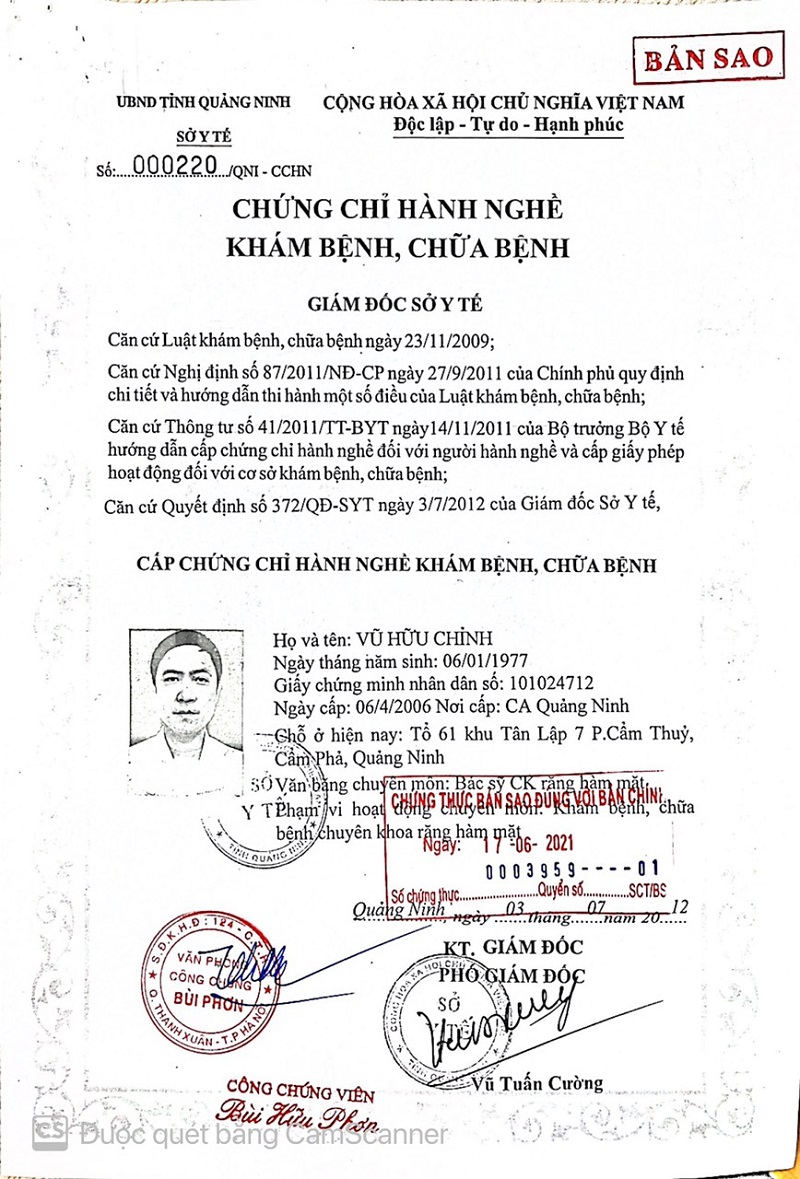 BẢN SAO
UBND TỈNH QUẢNG NINH
SỞ Y TẾ
Số:....000220.../QNI - CCHN
CỘNG HÒA XÃ HỘI CHỦ NGHĨA VIỆT NAM
Độc lập - Tự do - Hạnh phúc
CHỨNG CHỈ HÀNH NGHỀ
KHÁM BỆNH, CHỮA BỆNH
GIÁM ĐỐC SỞ Y TẾ
Căn cứ Luật khám bệnh, chữa bệnh ngày 23/11/2009;
Căn cứ Nghị định số 87/2011/NĐ-CP ngày 27/9/2011 của Chính phủ quy định
chi tiết và hướng dẫn thi hành một số điều của Luật khám bệnh, chữa bệnh;
Căn cứ Thông tư số 41/2011/TT-BYT ngày14/11/2011 của Bộ trưởng Bộ Y tế
hướng dẫn cấp chứng chỉ hành nghề đối với người hành nghề và cấp giấy phép
hoạt động đối với cơ sở khám bệnh, chữa bệnh;
Căn cứ Quyết định số 372/QĐ-SYT ngày 3/7/2012 của Giám đốc Sở Y tế,
CẤP CHỨNG CHỈ HÀNH NGHỀ KHÁM BỆNH, CHỮA BỆNH
Họ và tên: VŨ HỮU CHỈNH
Ngày tháng năm sinh: 06/01/1977
Giấy chứng minh nhân dân số: 101024712
Ngày cấp: 06/4/2006 Nơi cấp: CA Quảng Ninh
Chỗ ở hiện nay: Tổ 61 khu Tân Lập 7 P.Cẩm Thuỷ,
Cẩm Phả, Quảng Ninh
Văn bằng chuyên môn: Bác sỹ CK răng hàm mặt.
Phạm vi hoạt động chuyên môn: Khám bệnh, chữa
bệnh chuyên khoa răng hàm mặt
SỞ
Y TẾ
TỈNH QUẢNG NINH
CHỨNG THỰC BẢN SAO ĐÚNG VỚI BẢN CHÍNH
Ngày: 17 -06- 2021
0003959----01
Số chứng thực..................Quyển số............SCT/BS
Quảng Ninh, ngày 03 tháng 07 năm 2012
KT. GIÁM ĐỐC
PHÓ GIÁM ĐỐC
SỞ
Y TẾ
Vũ Tuấn Cường
S.D.K.H.D : 124 - C.T.
VĂN PHÒNG
CÔNG CHỨNG
BÙI PHƠN
Q. THANH XUÂN - T.P HÀ NỘI
CÔNG CHỨNG VIÊN
Bùi Hữu Phơn
CS Được quét bằng CamScanner